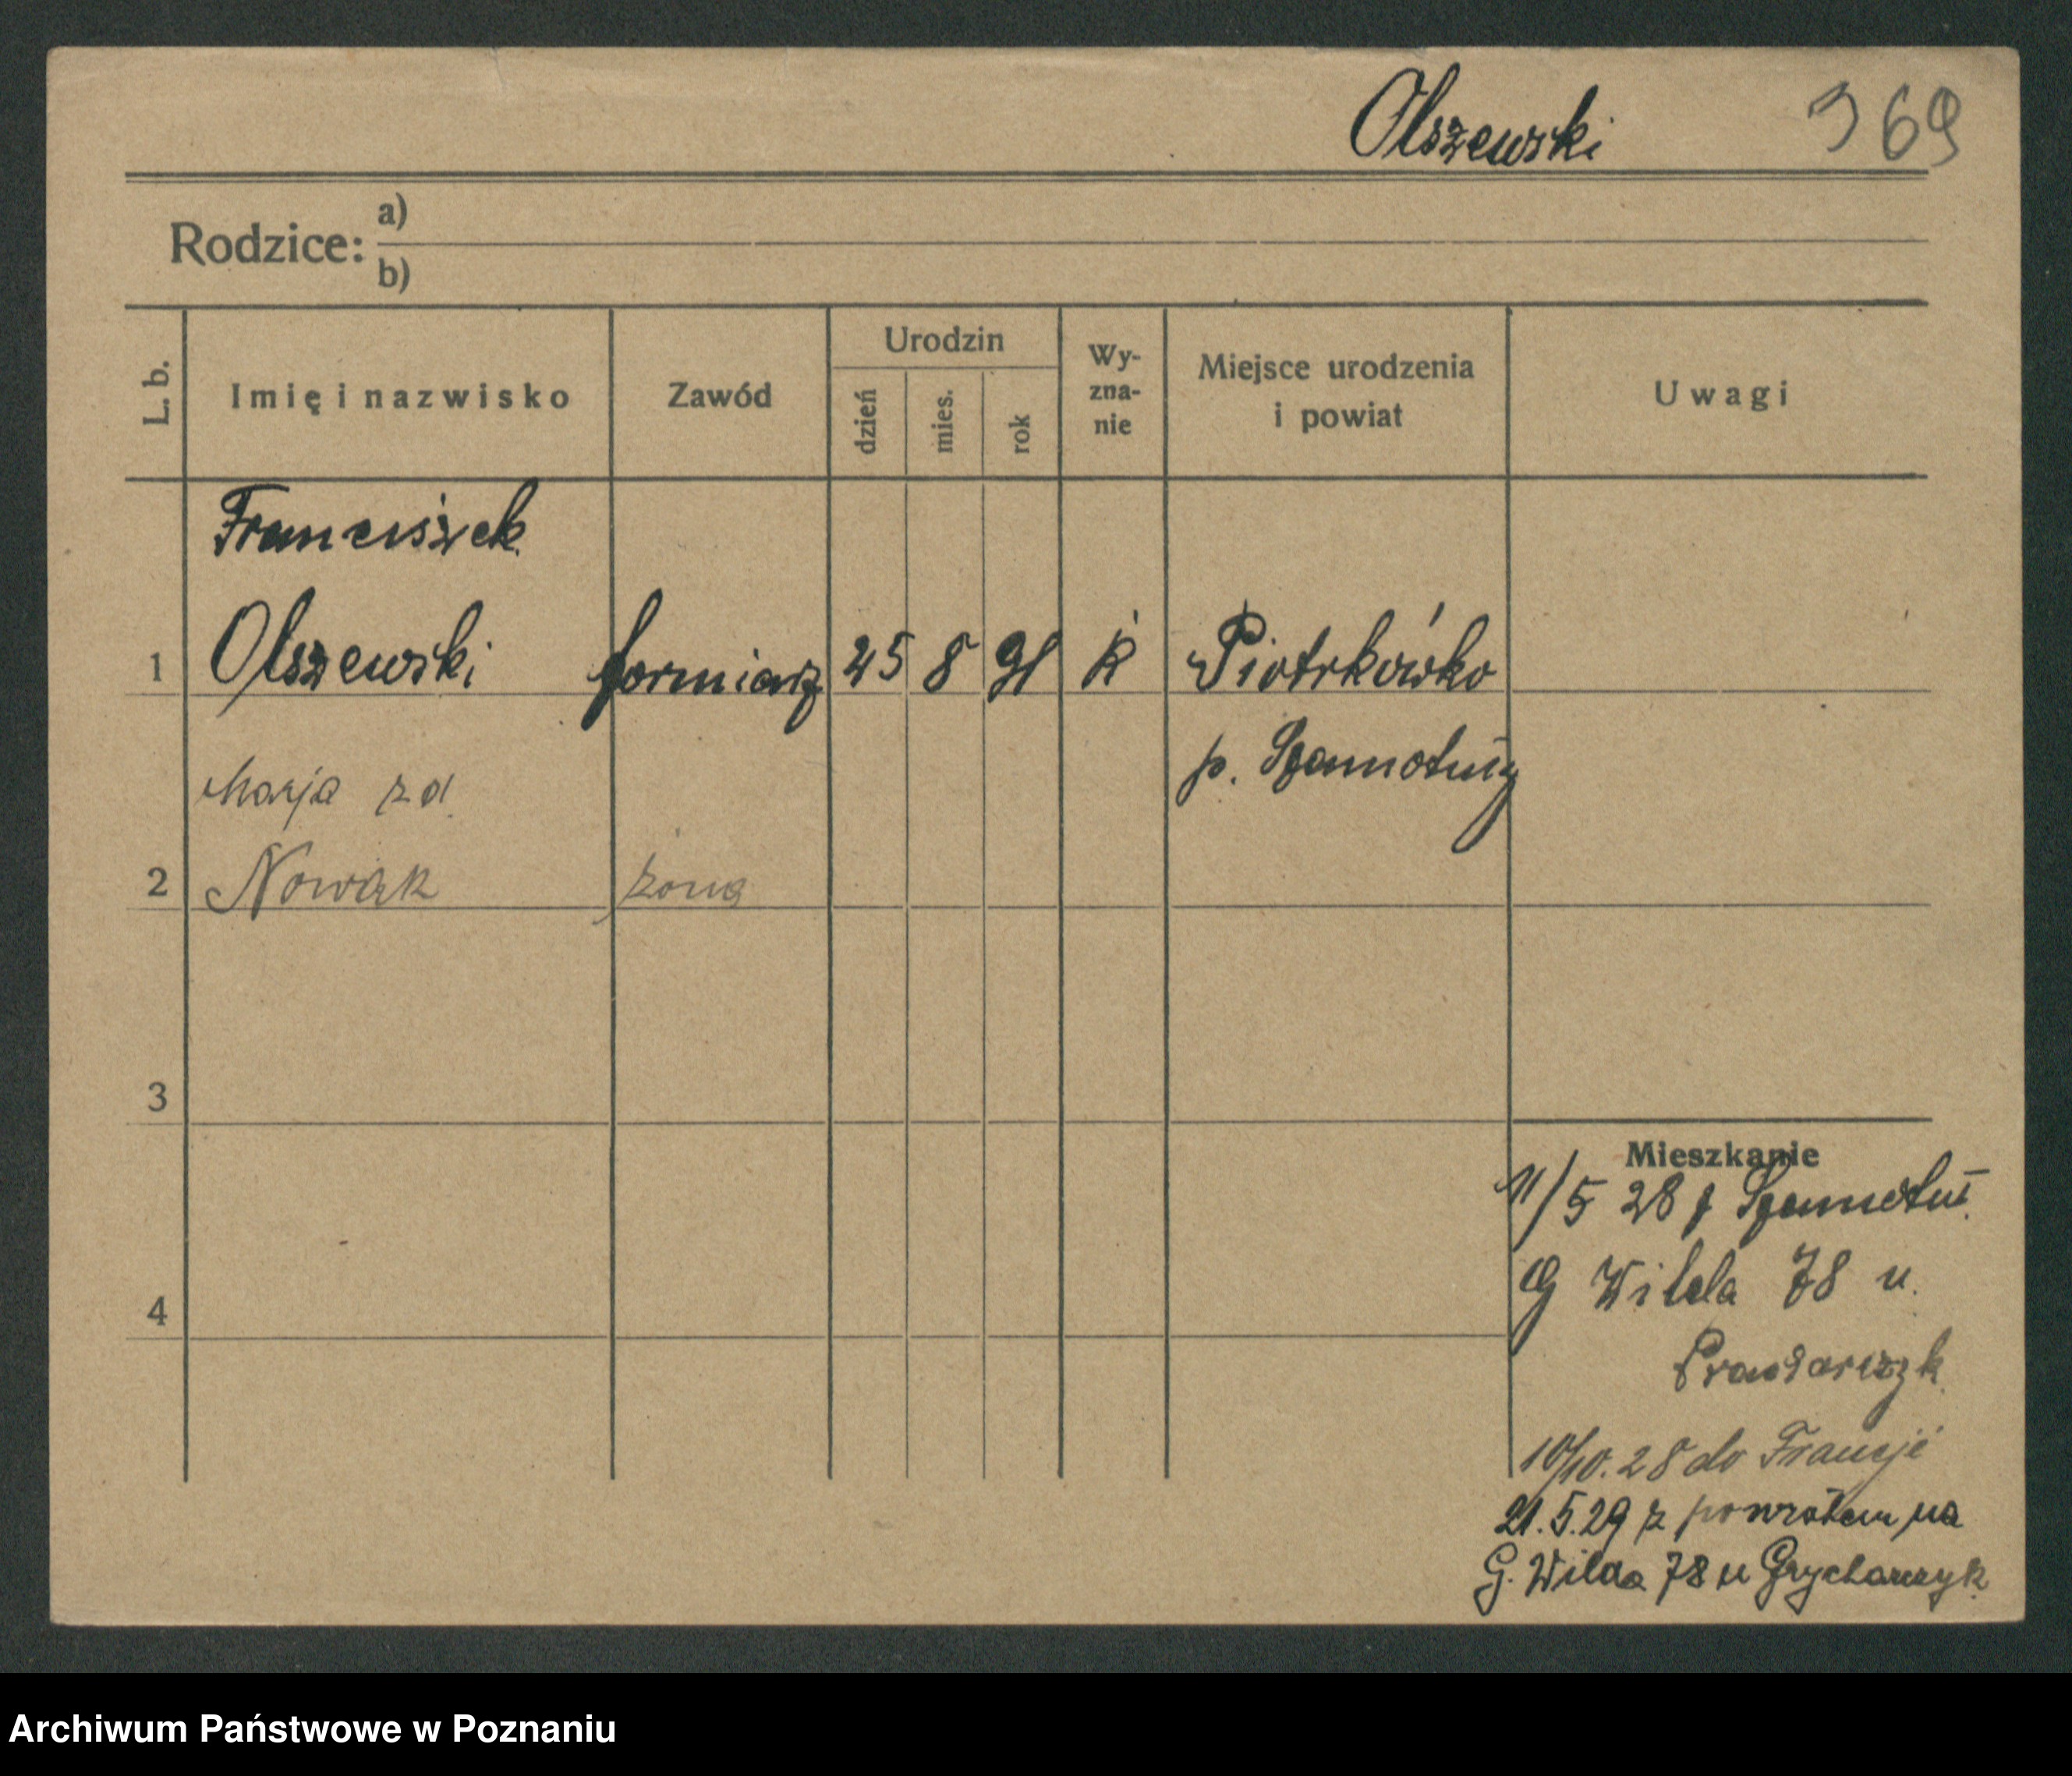 Olszewski 369
Rodzice: a)
b)
L. b. Imię i nazwisko Zawód Urodzin dzień mies. rok Wy-zna-nie Miejsce urodzenia i powiat Uwagi
Franciszek
1 Olszewski formiarz 25 8 91 k Piotrkówko
p. Szamotuły
Marja zd.
2 Nowak żona
3
4
Mieszkanie
11/5 28 Szamotuł
G Wilda 78 u.
10/10. 28 do Francji
21.5.29 z powrotem na
G. Wilda 78 u Grycharczyk
Archiwum Państwowe w Poznaniu